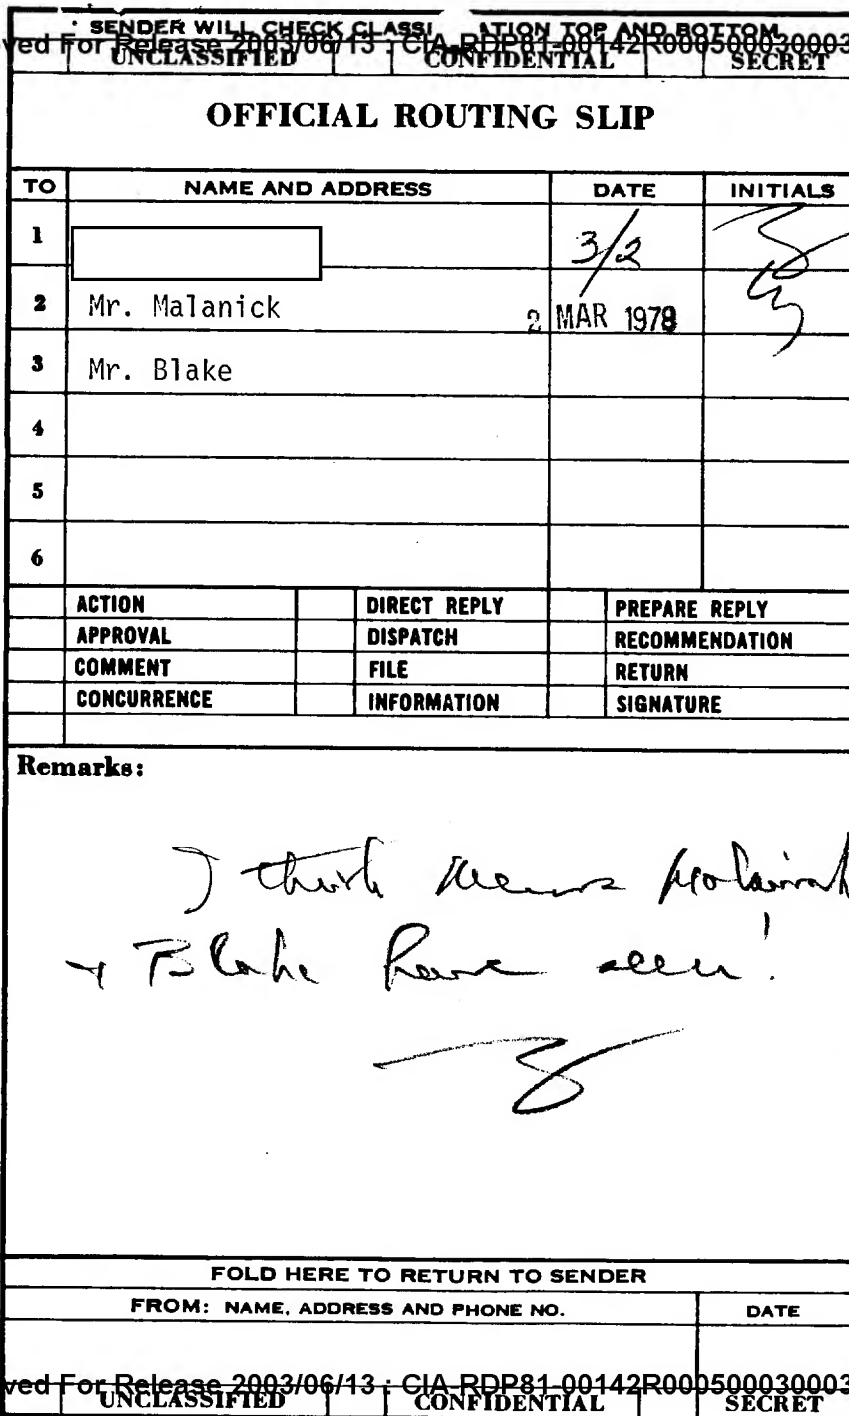 SENDER WILL CHECK CLASSI ATION TOP AND BOTTOM
ved For Release 2003/06/13 : CIA-RDP81-00142R000500030003
UNCLASSIFIED CONFIDENTIAL SECRET
OFFICIAL ROUTING SLIP
TO NAME AND ADDRESS DATE INITIALS
1 3/2
2 Mr. Malanick 2 MAR 1978
3 Mr. Blake
4
5
6
ACTION DIRECT REPLY PREPARE REPLY
APPROVAL DISPATCH RECOMMENDATION
COMMENT FILE RETURN
CONCURRENCE INFORMATION SIGNATURE
Remarks:
I think
+ Blake have seen!
FOLD HERE TO RETURN TO SENDER
FROM: NAME, ADDRESS AND PHONE NO. DATE
ved For Release 2003/06/13 : CIA-RDP81-00142R0005000300003
UNCLASSIFIED CONFIDENTIAL SECRET